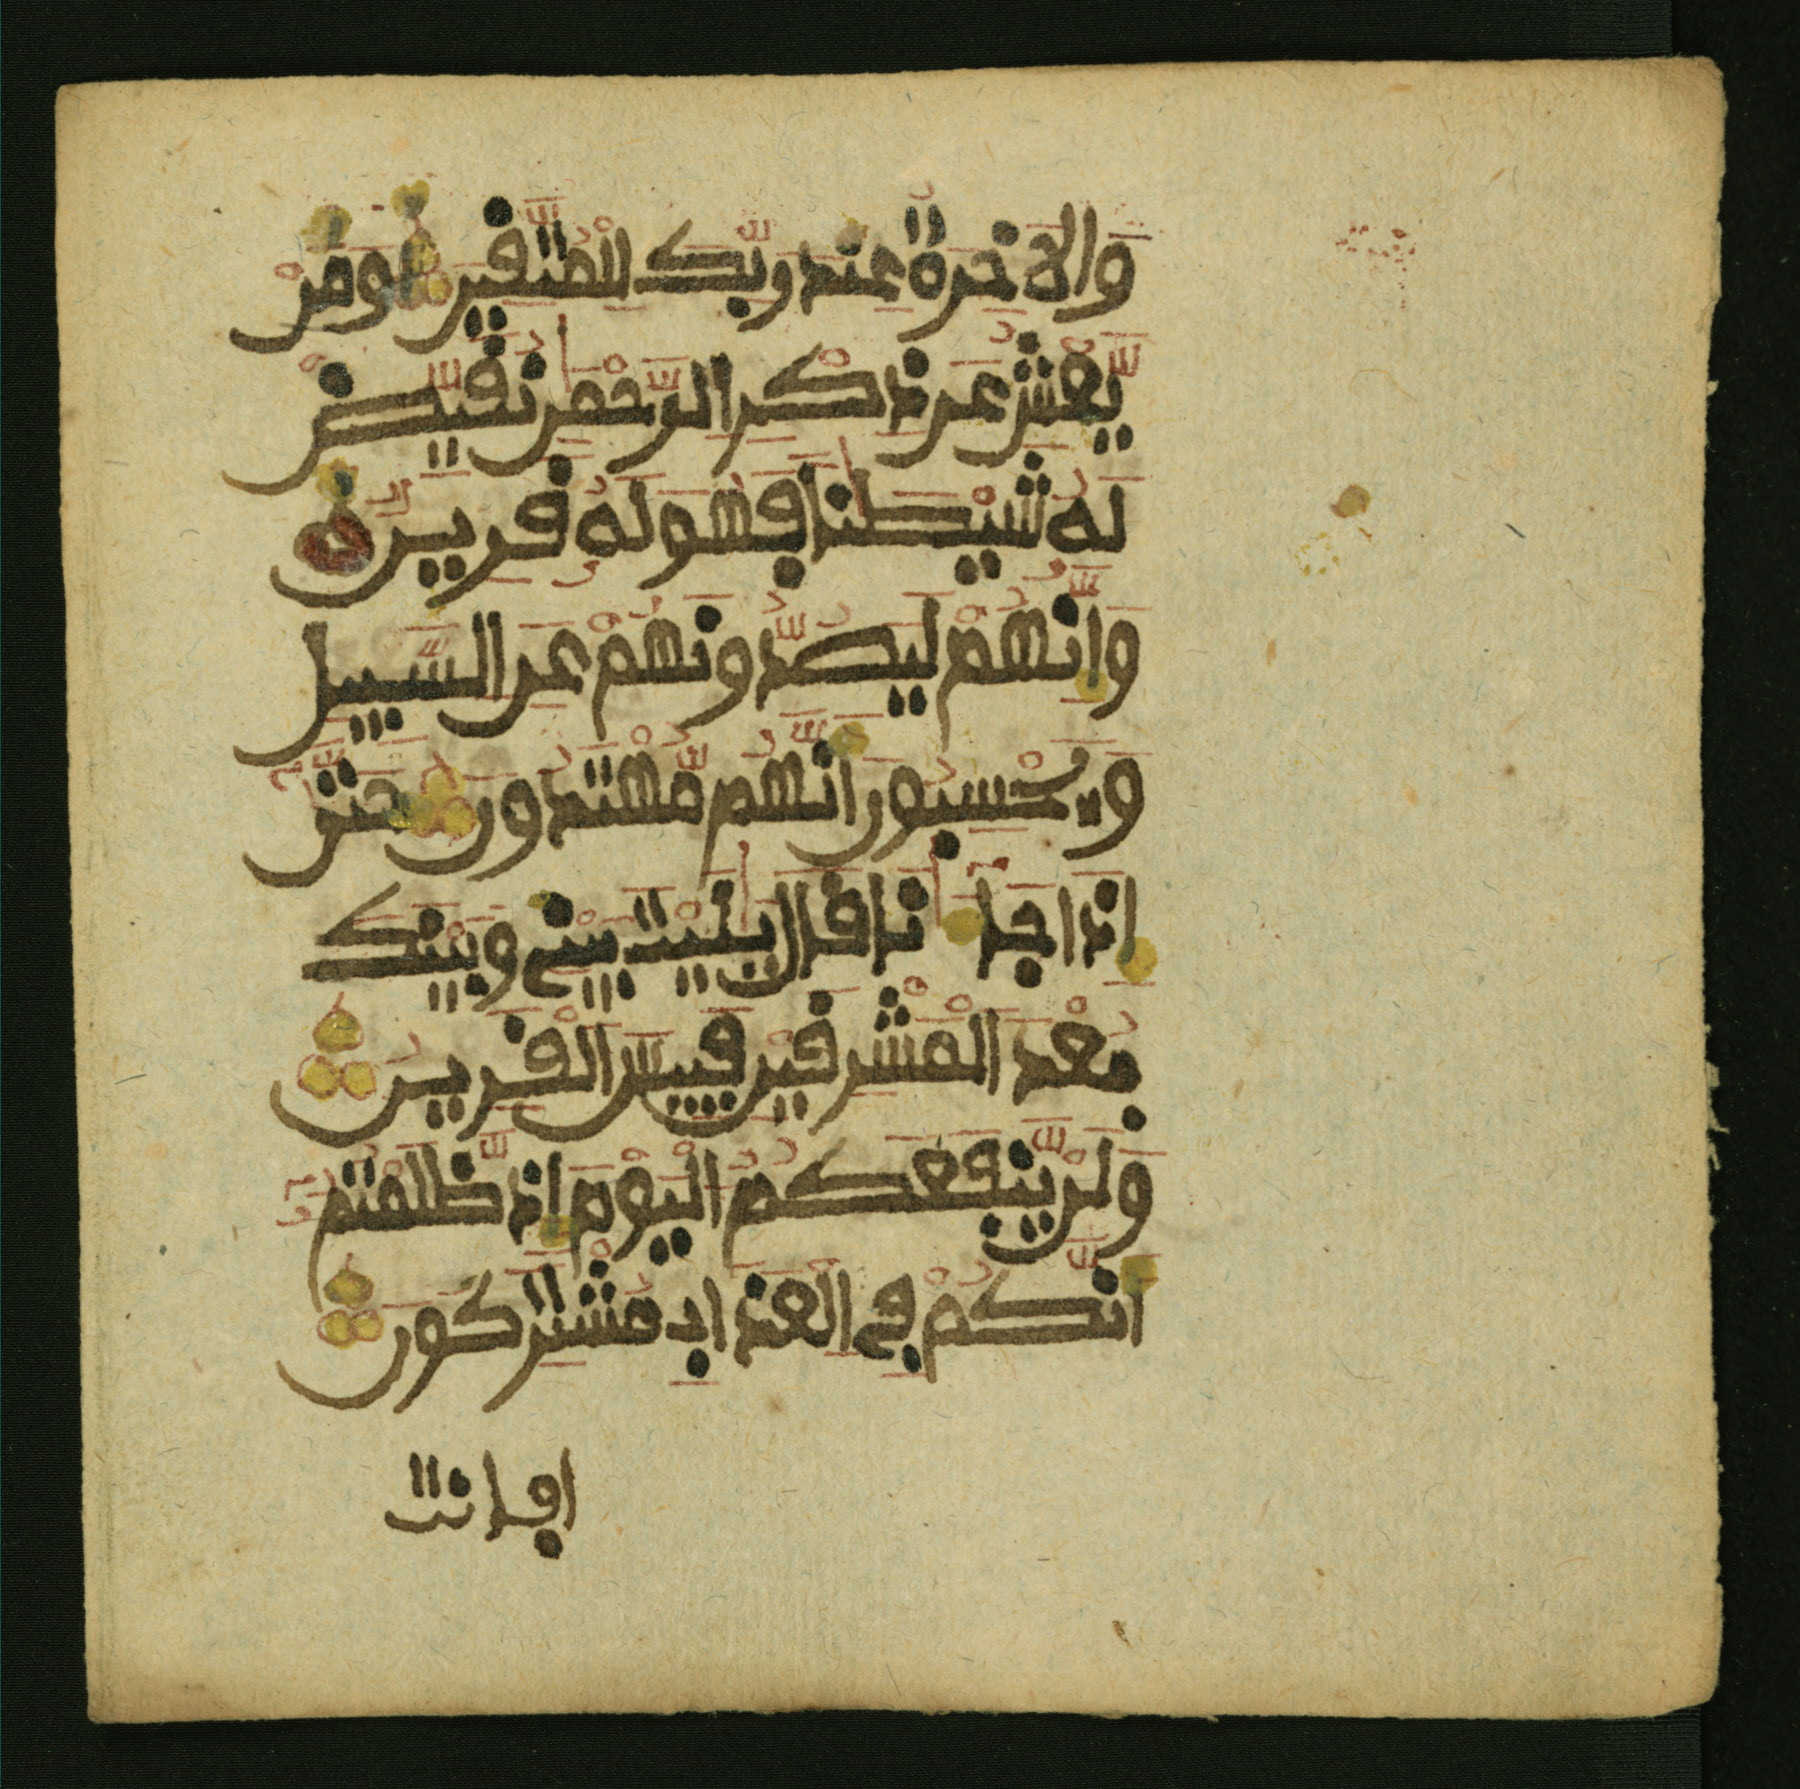 وَالَاخِرَةُ عِندَ رَبِّكَ لِلْمُتَّقِينَ وَمَنْ
يَّعْشُ عَن ذِكْرِ الرَّحْمَٰنِ نُقَيِّضْ
لَهُ شَيْطَٰنا فَهُوَ لَهُ قَرِينٌ
وَإِنَّهُمْ لَيَصُدُّونَهُمْ عَنِ السَّبِيلِ
وَيَحْسِبُونَ أَنَّهُم مُّهْتَدُونَ حَتَّىٰ
إِذَا جَاءَٰنَا قَالَ يَٰلَيْتَ بَيْنِي وَبَيْنَكَ
بُعْدَ الْمَشْرِقَيْنِ فَبِيسَ الْقَرِينُ
وَلَنْ يَّنفَعَكُمُ الْيَوْمَ إِذ ظَّلَمْتُمُ
أَنَّكُمْ فِي الْعَذَابِ مُشْتَرِكُونَ
افانت